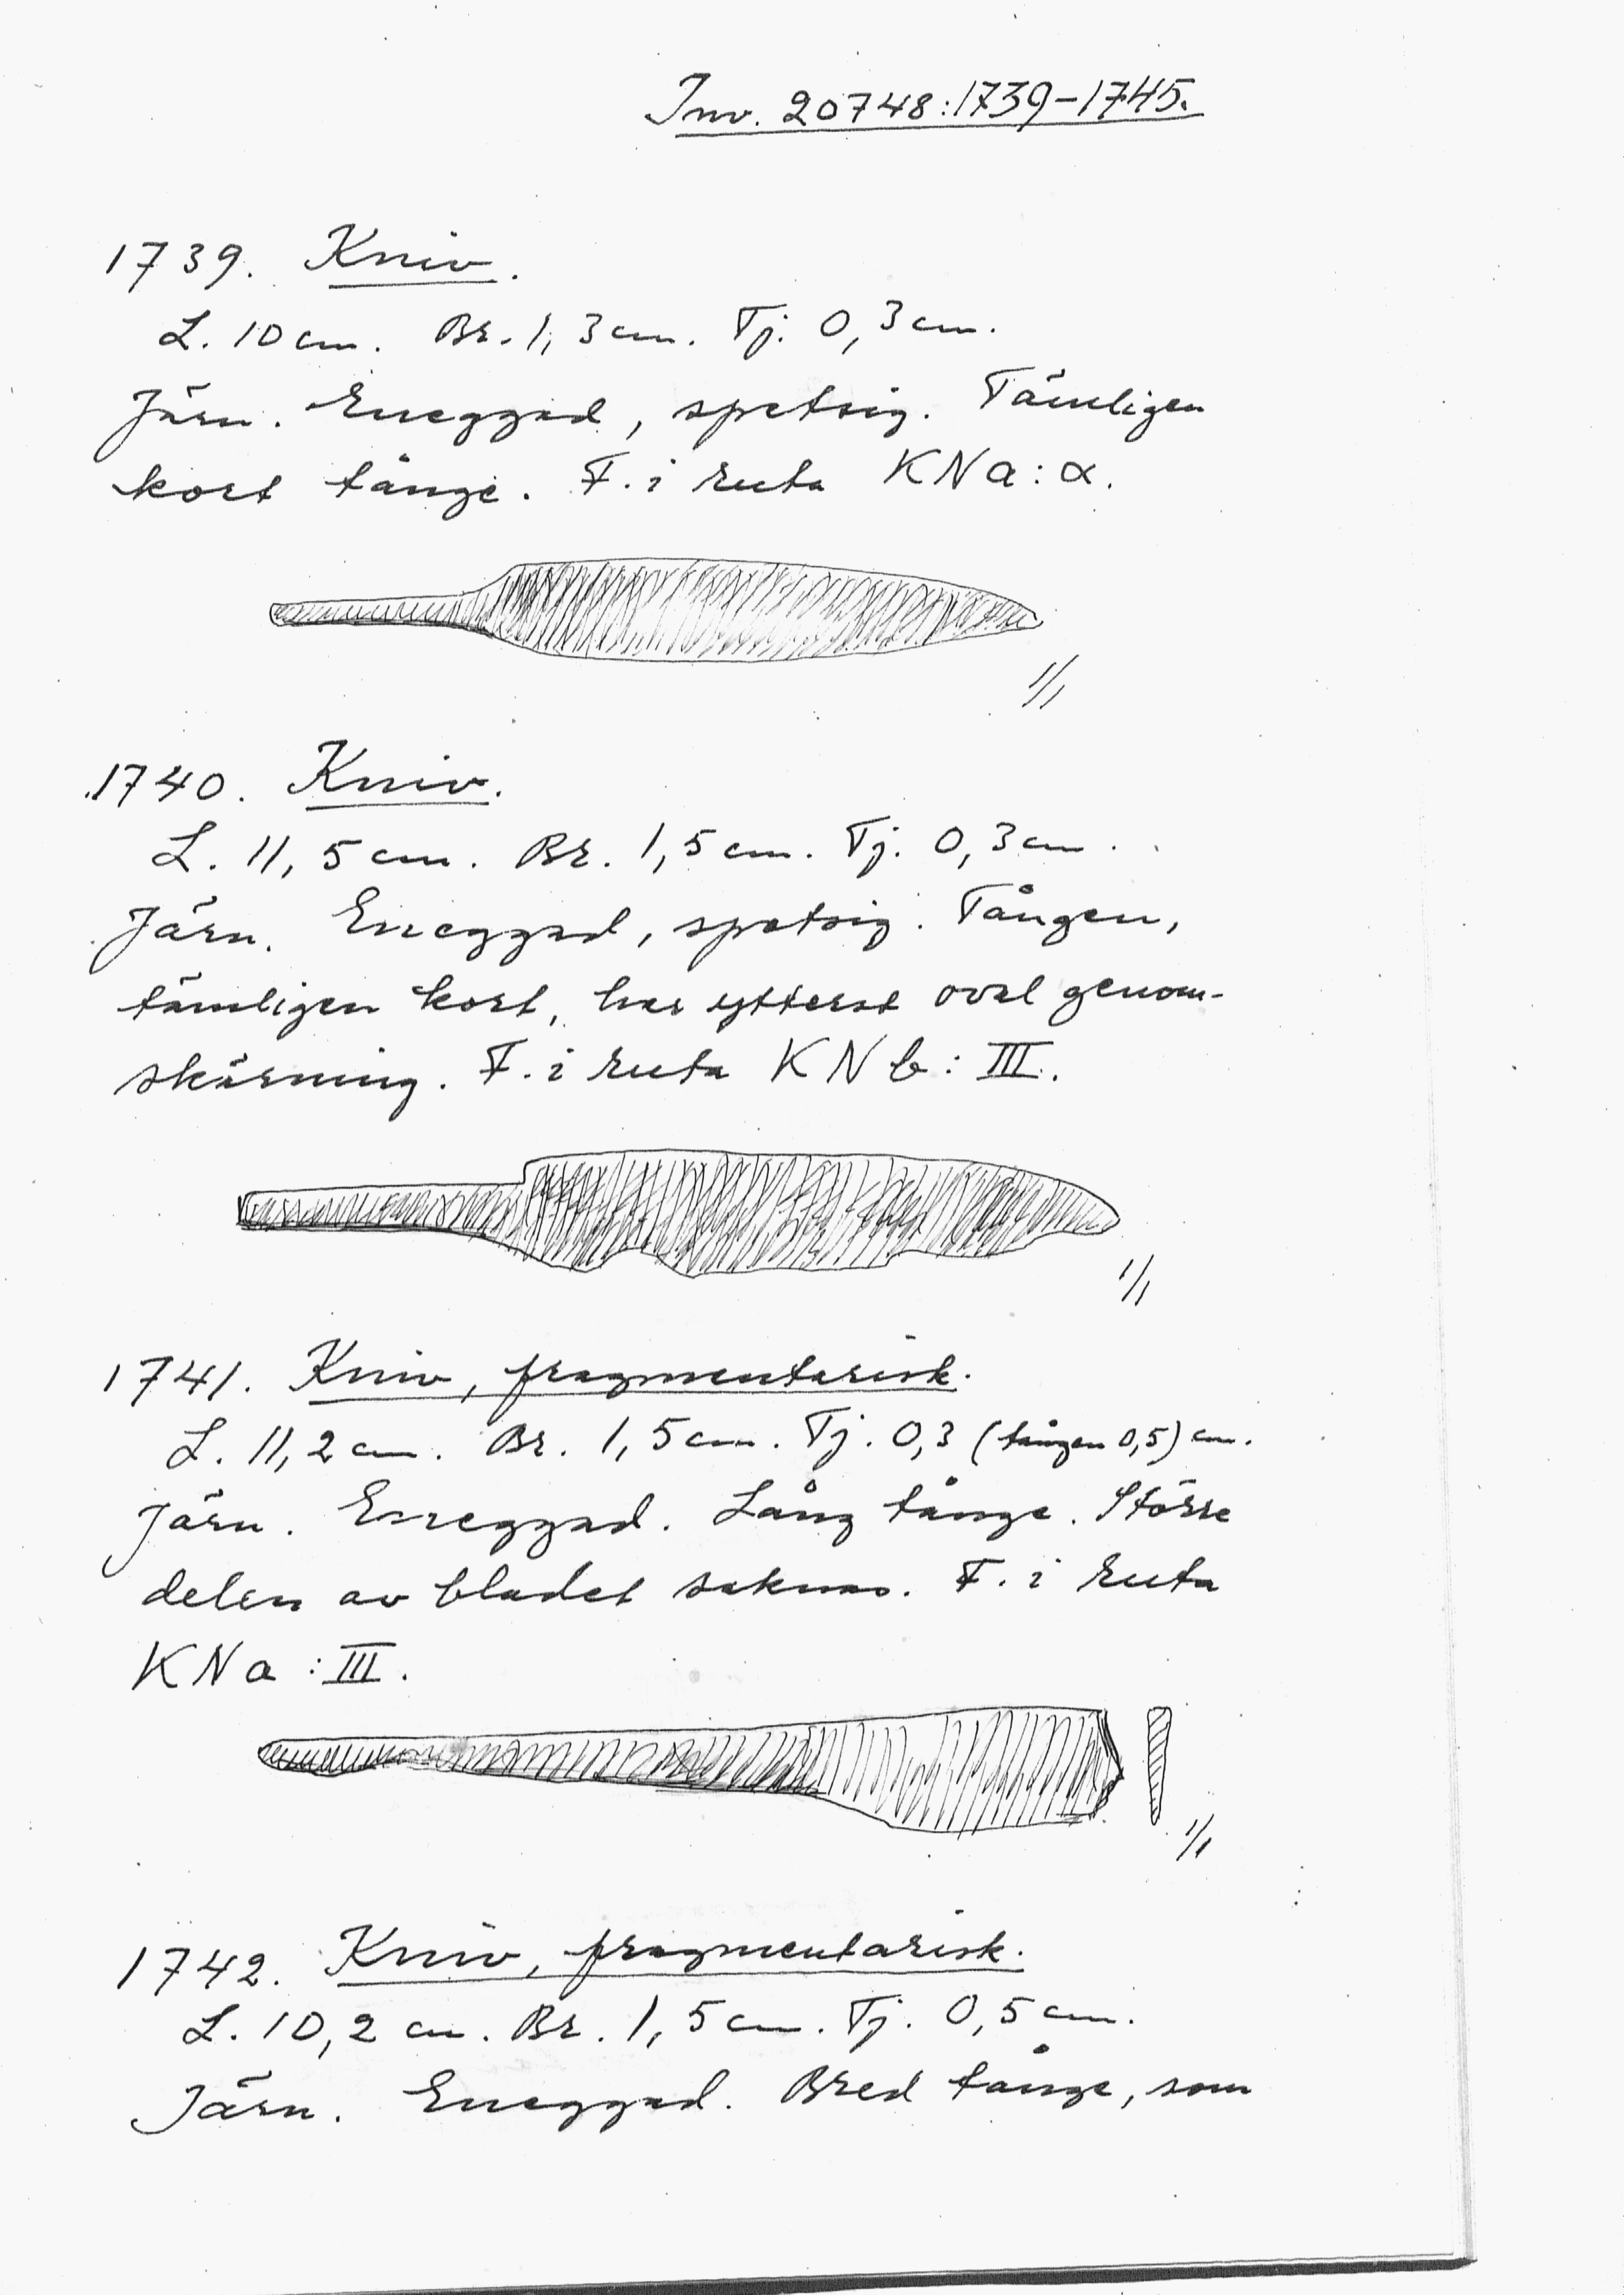 Inv. 20748:1739-1745.
1739. Kniv.
L. 10 cm. Br. 1,3 cm. Tj. 0,3 cm.
Järn. Eneggad, spetsig. Tämligen
kort tånge. F. i ruta KNa:α.
1/1
1740. Kniv.
L. 11,5 cm. Br. 1,5 cm. Tj. 0,3 cm.
Järn. Eneggad, spetsig. Tången,
tämligen kort, har ytterst oval genom-
skärning. F. i ruta KNb:III.
1/1
1741. Kniv, fragmentarisk.
L. 11,2 cm. Br. 1,5 cm. Tj. 0,3 (tången 0,5) cm.
Järn. Eneggad. Lång tånge. Större
delen av bladet saknas. F. i ruta
KNa:III.
1/1
1742. Kniv, fragmentarisk.
L. 10,2 cm. Br. 1,5 cm. Tj. 0,5 cm.
Järn. Eneggad. Bred tånge, som